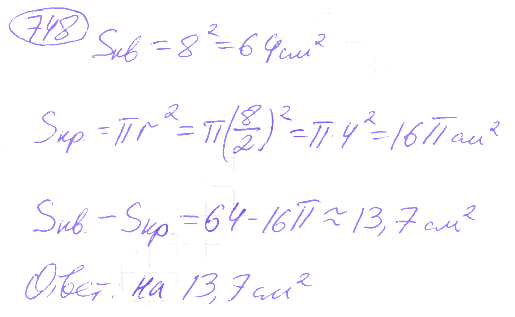 748
Sкв. = 8² = 64 см²
Sкр. = πr² = π(8/2)² = π·4² = 16π см²
Sкв. − Sкр. = 64 − 16π ≈ 13,7 см²
Ответ. на 13,7 см²